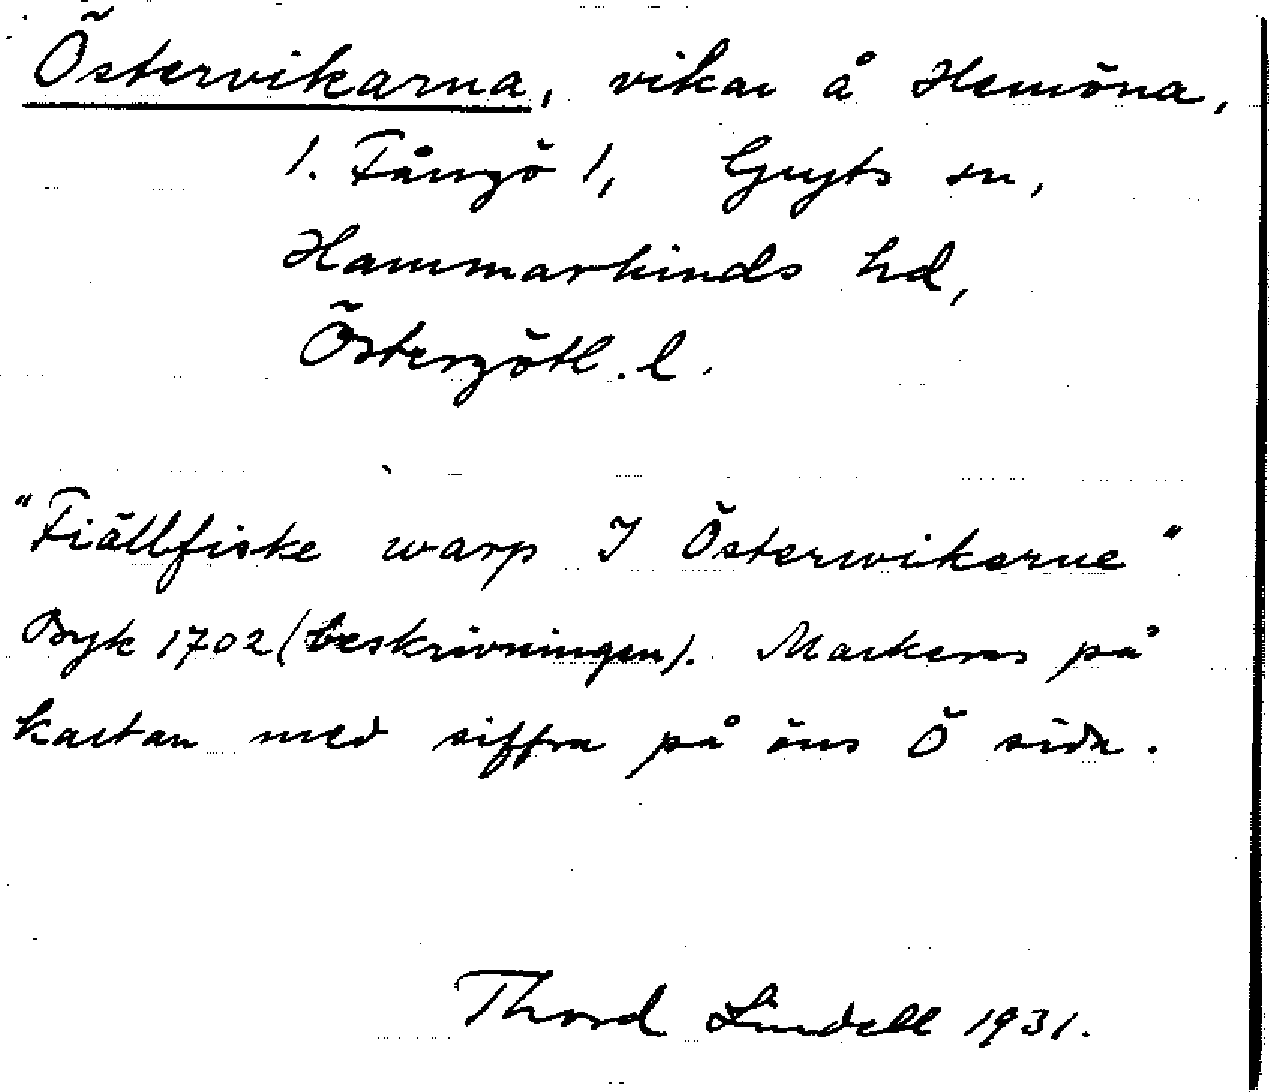 Östervikarna, vikar å Hemöna,
1. Fångö 1, Gryts sn,
Hammarkinds hd,
Östergötl. l.
"Fiällfiske warp I Österwikarne"
Byk 1702 (beskrivningen). Markeras på
kartan med siffra på öns Ö sida.
Thord Lindell 1931.